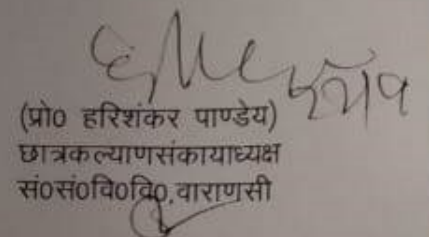 (प्रो० हरिशंकर पाण्डेय)
छात्रकल्याणसंकायाध्यक्ष
सं०सं०वि०वि०,वाराणसी